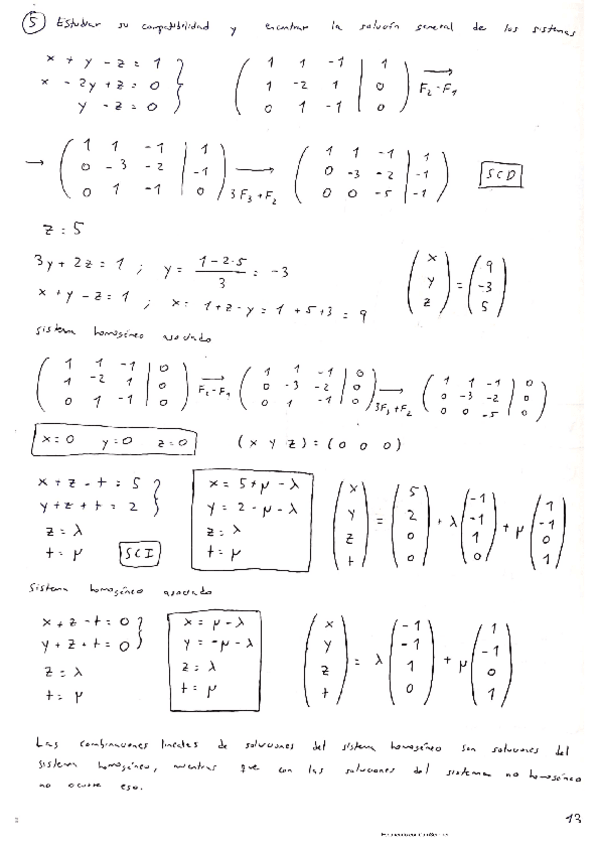 5 Estudiar su compatibilidad y encontrar la solución general de los sistemas
x + y - z = 1
x - 2y + z = 0
y - z = 0
( 1 1 -1 | 1
1 -2 1 | 0
0 1 -1 | 0 ) → F2 - F1
→ ( 1 1 -1 | 1
0 -3 -2 | -1
0 1 -1 | 0 ) → 3F3 + F2 ( 1 1 -1 | 1
0 -3 -2 | -1
0 0 -5 | -1 ) SCD
z = 5
3y + 2z = 1 ; y = (1 - 2·5)/3 = -3
x + y - z = 1 ; x = 1 + z - y = 1 + 5 + 3 = 9
(x y z) = (9 -3 5)
sistema homogéneo asociado
( 1 1 -1 | 0
1 -2 1 | 0
0 1 -1 | 0 ) → F2 - F1 ( 1 1 -1 | 0
0 -3 -2 | 0
0 1 -1 | 0 ) → 3F3 + F2 ( 1 1 -1 | 0
0 -3 -2 | 0
0 0 -5 | 0 )
x = 0 y = 0 z = 0 (x y z) = (0 0 0)
x + z - t = 5
y + z + t = 2
z = λ
t = μ SCI
x = 5 + μ - λ
y = 2 - μ - λ
z = λ
t = μ
(x y z t) = (5 2 0 0) + λ (-1 -1 1 0) + μ (1 -1 0 1)
Sistema homogéneo asociado
x + z - t = 0
y + z + t = 0
z = λ
t = μ
x = μ - λ
y = -μ - λ
z = λ
t = μ
(x y z t) = λ (-1 -1 1 0) + μ (1 -1 0 1)
Las combinaciones lineales de soluciones del sistema homogéneo son soluciones del
sistema homogéneo, mientras que con las soluciones del sistema no homogéneo
no ocurre eso.
13